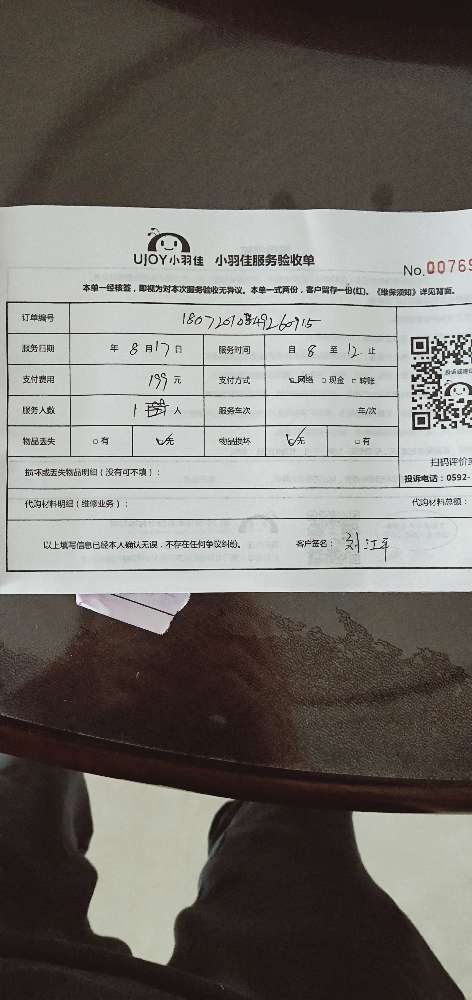 UJOY小羽佳 小羽佳服务验收单
No.00769
本单一经核签，即视为对本次服务验收无异议。本单一式两份，客户留存一份(红)。《维保须知》详见背面。
订单编号
服务日期 年 8 月 17 日 服务时间 自 8 至 12 止
支付费用 199 元 支付方式 网络 现金 转账
服务人数 1 人 服务车次 年/次
物品丢失 有 无 物品损坏 无 有
损坏或丢失物品明细（没有可不填）：
代购材料明细（维修业务）： 代购材料总额：
以上填写信息已经本人确认无误，不存在任何争议纠纷。 客户签名： 刘江平
投诉或建议
扫码评价
投诉电话：0592-